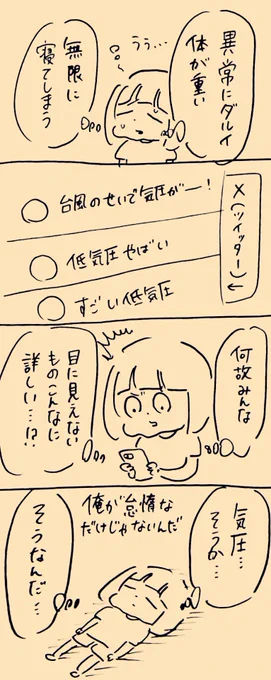 うぅ…
異常にダルイ
体が重い
無限に
寝てしまう
X(ツイッター)↓
台風のせいで気圧がー!
低気圧やばい
すごい低気圧
何故みんな
目に見えない
ものこんなに
詳しい…!?
気圧…
そうか…
俺が怠惰な
だけじゃないんだ
そうなんだ…